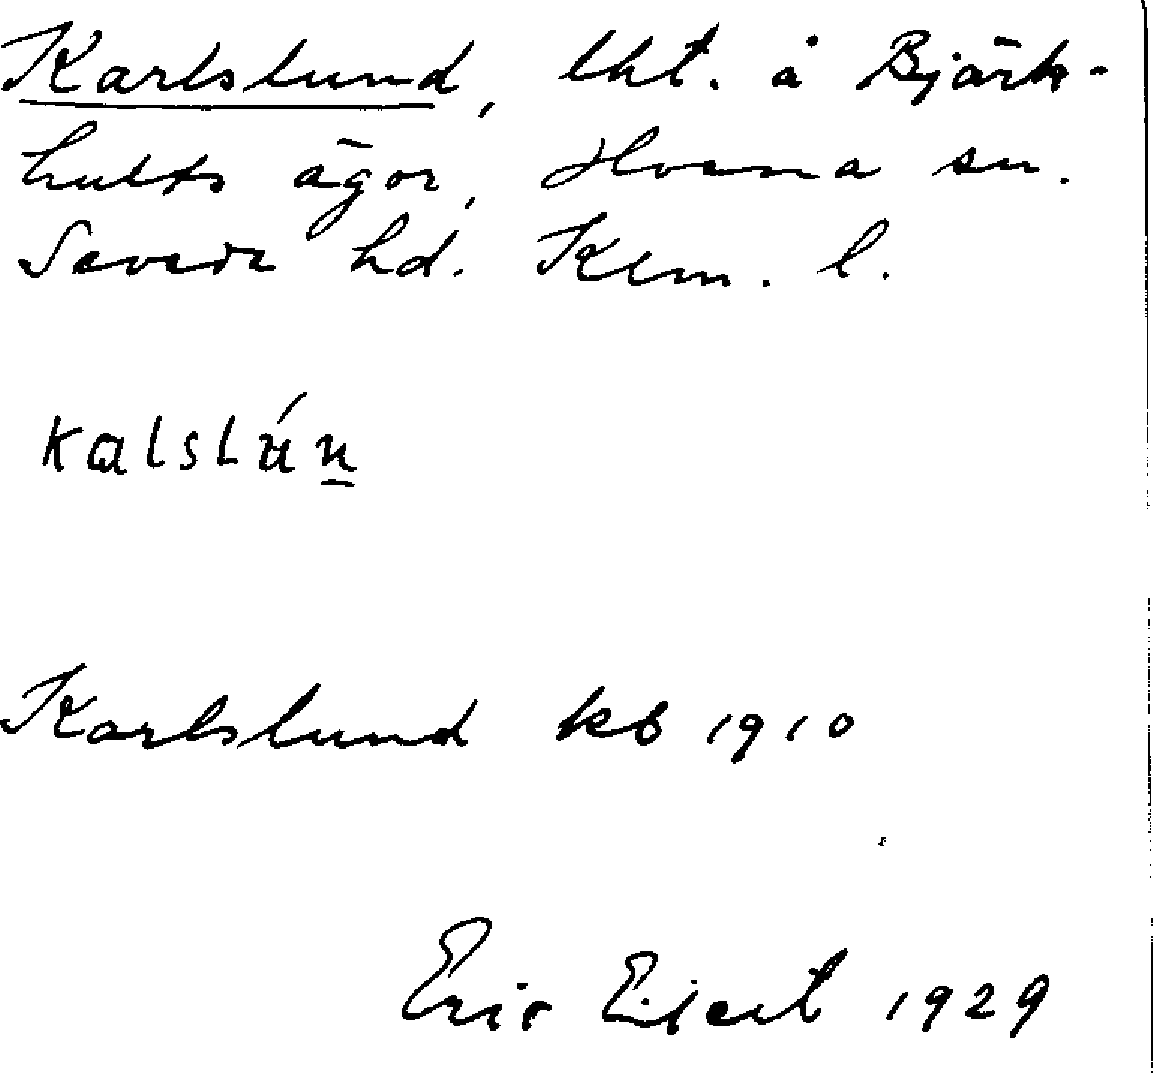 Karlslund, lht. å Björk-
hults ägor, Hvena sn.
Sevede hd. Klm. l.
kalslún̲
Karlslund kb 1910
Eric Eijert 1929